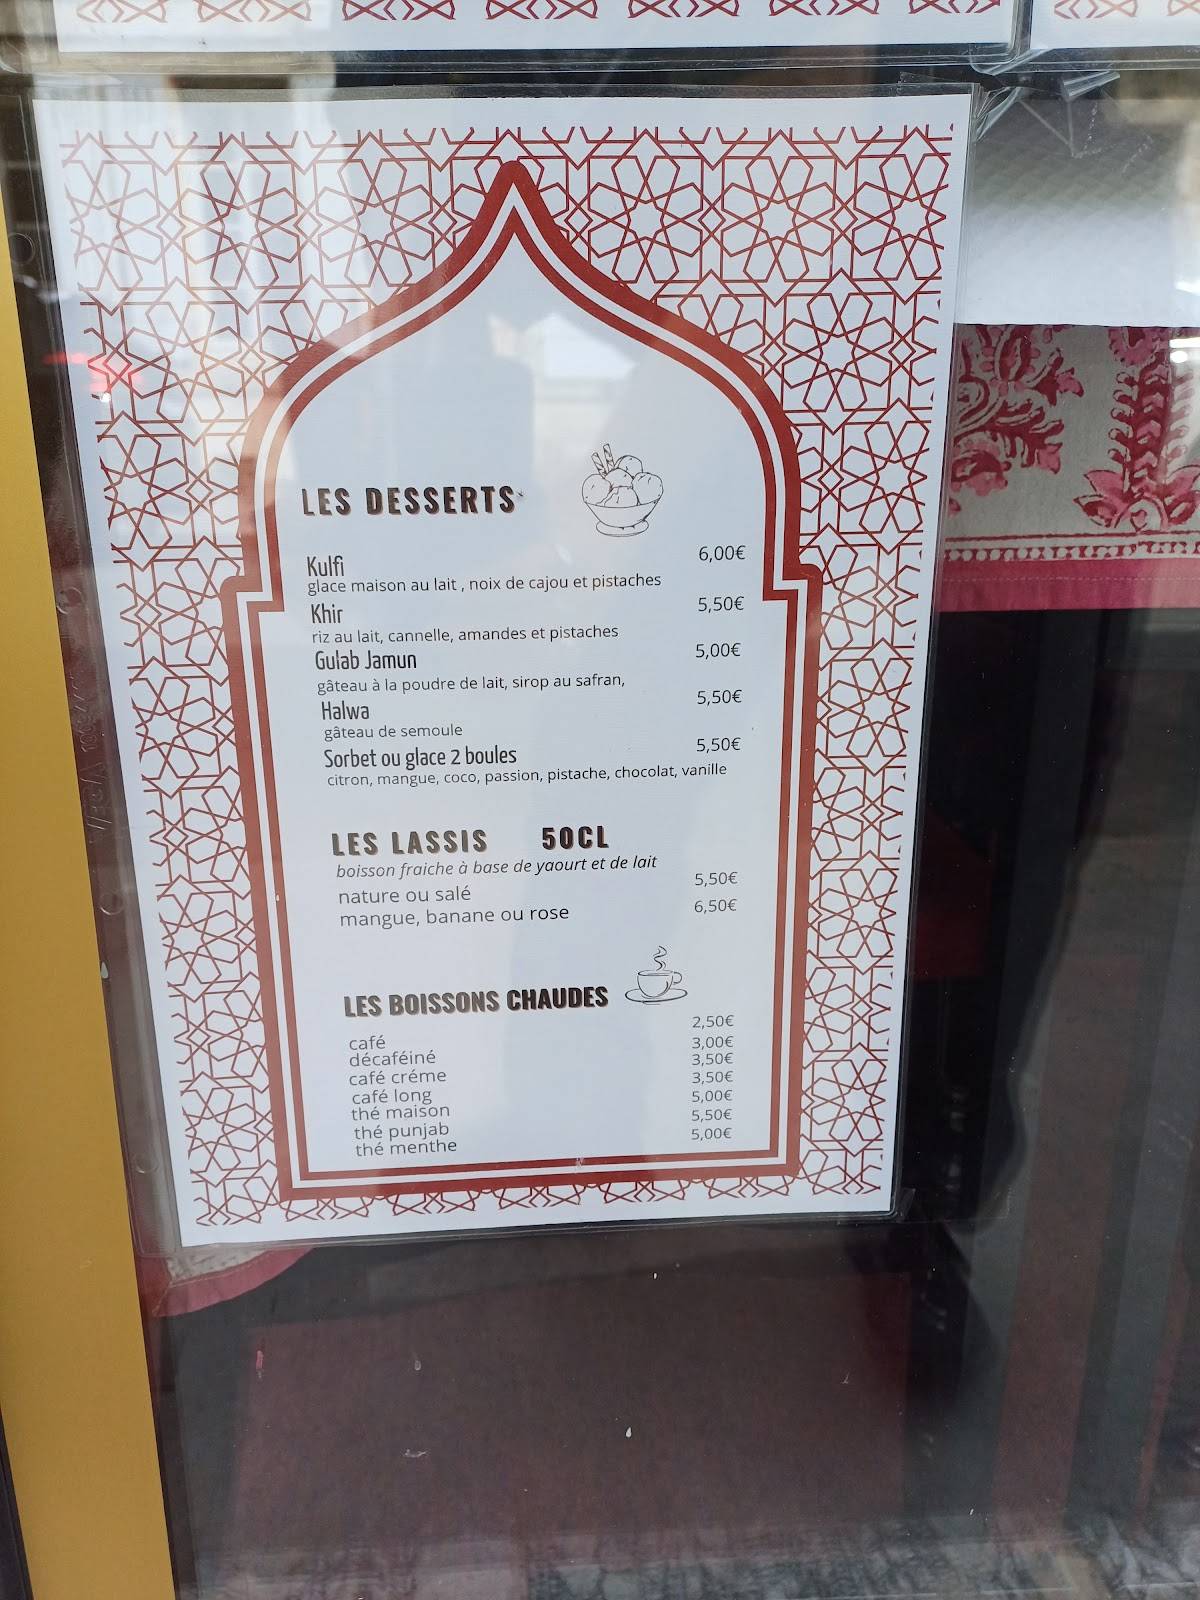 LES DESSERTS
Kulfi 6,00€
glace maison au lait , noix de cajou et pistaches
Khir 5,50€
riz au lait, cannelle, amandes et pistaches
Gulab Jamun 5,00€
gâteau à la poudre de lait, sirop au safran,
Halwa 5,50€
gâteau de semoule
Sorbet ou glace 2 boules 5,50€
citron, mangue, coco, passion, pistache, chocolat, vanille
LES LASSIS 50CL
boisson fraiche à base de yaourt et de lait
nature ou salé 5,50€
mangue, banane ou rose 6,50€
LES BOISSONS CHAUDES
café 2,50€
décaféiné 3,00€
café créme 3,50€
café long 3,50€
thé maison 5,00€
thé punjab 5,50€
thé menthe 5,00€